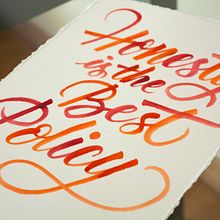 Honesty
is the
Best
Policy